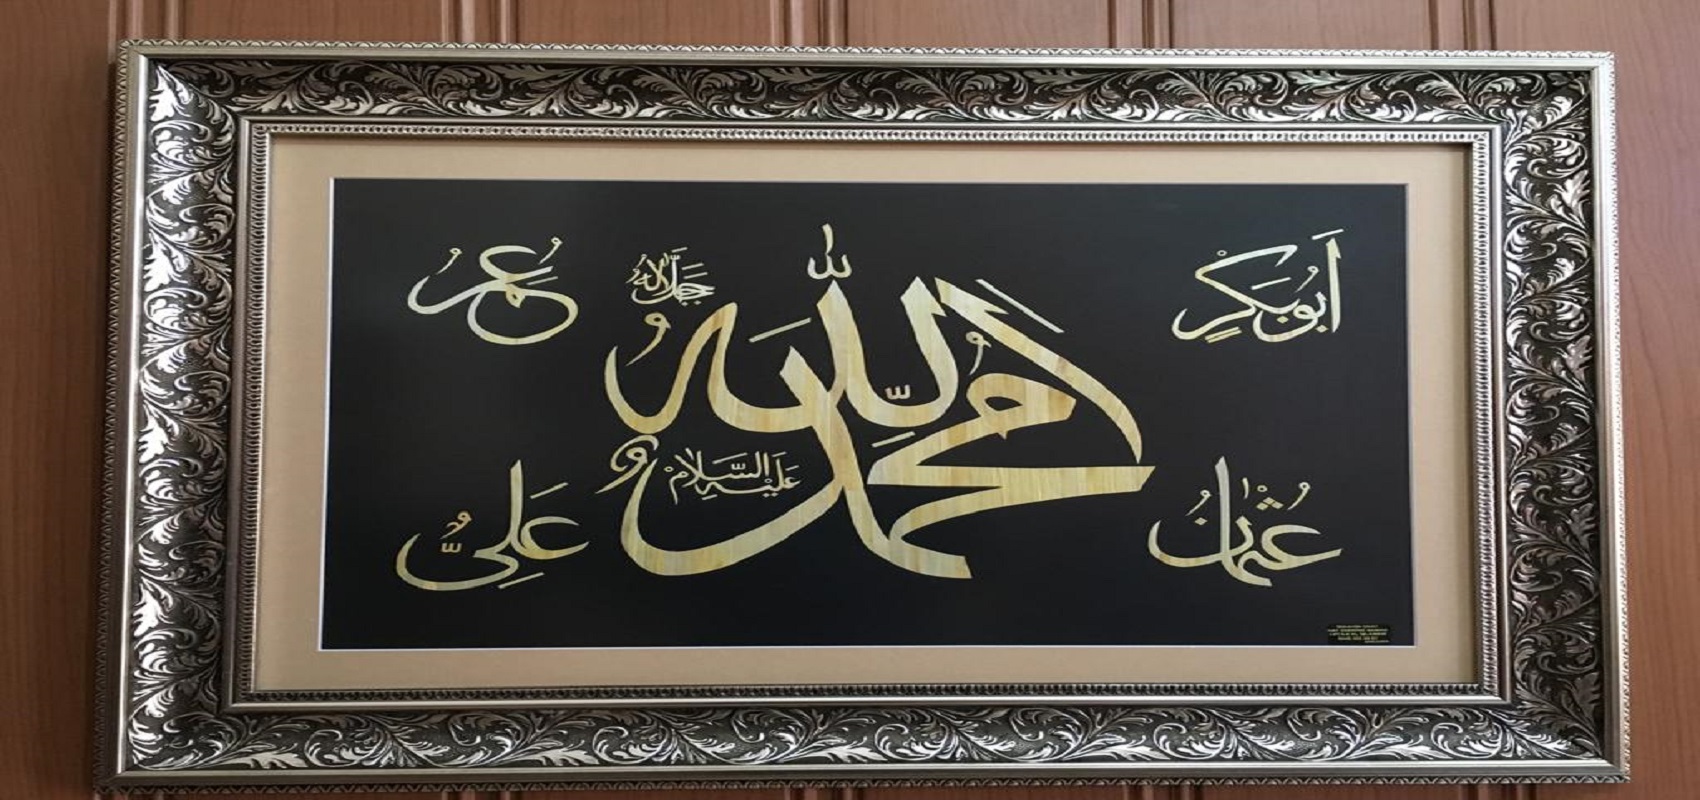 أَبُوبَكْرٍ
عُمَرُ
اللّٰه
جَلَّ جَلَالُهُ
مُحَمَّدٌ
عَلَيْهِ السَّلَامْ
عُثْمَانُ
عَلِيٌّ